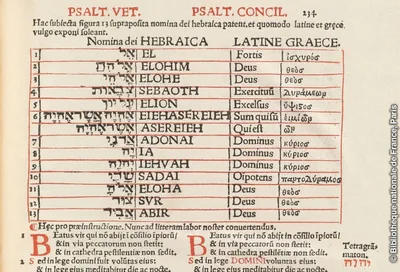 PSALT. VET. PSALT. CONCIL. 234
Hæc subiecta figura 13 supraposita nomina dei hebraica patent, et quomodo latine et grece
vulgo exponi soleant.
Nomina dei HEBRAICA LATINE GRAECE.
1 אל EL Fortis ἰσχυρόσ
2 אלהים ELOHIM Deus θεόσ
3 אלהי ELOHE Deus θεόσ
4 צבאות SEBAOTH Exercituū
5 עליון ELION Excelsus ὕψιστοσ
6 אהיה אשר אהיה EIEHASEREIEH Sum qui sū
7 אשר אהיה ASEREIEH Qui est ὤν
8 אדני ADONAI Dominus κύριοσ
9 יה IA Dominus κύριοσ
10 יהוה IEHVAH Dominus κύριοσ
11 שדי SADAI Oīpotens
12 אלוה ELOHA Deus θεόσ
13 אביר ABIR Deus θεόσ
Hęc pro præinstructione. Nunc ad litteram labor noster conuertendus.
1 Beatus vir qui nō abijt in cōsilio īpiorū Beatus vir qui nō abijt in cōsilio īpiorū
& in via peccatorum non stetit: & in via peccatorum non stetit: Tetragrā
& in cathedra pestilentiæ non sedit. & in cathedra pestilentiæ non sedit. maton.
2 Sed in lege dñi voluntas eius: Sed in lege DOMINI voluntas eius: יהוה
& in lege eius meditabitur die ac nocte. & in lege eius meditabitur die ac nocte.
© Bibliothèque nationale de France, Paris